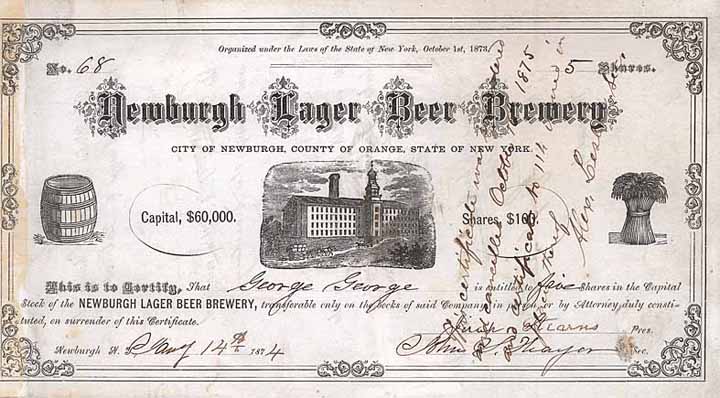 Organized under the Laws of the State of New York, October 1st, 1873.
No. 68
5 Shares.
Newburgh Lager Beer Brewery
CITY OF NEWBURGH, COUNTY OF ORANGE, STATE OF NEW YORK.
Capital, $60,000.
Shares, $100.
This is to Certify, That George George is entitled to five Shares in the Capital
Stock of the NEWBURGH LAGER BEER BREWERY, transferable only on the books of said Company in person or by Attorney, duly consti-
tuted, on surrender of this Certificate.
Stearns Pres.
Newburgh N. Y. 14th 1874
John S. Thayor Sec.
certificate was
cancelled October 1875
certificate No 114